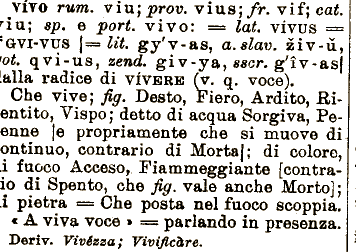 vívo rum. viu; prov. vius; fr. vif; cat.
viu; sp. e port. vivo: = lat. VIVUS =
*GVI-VUS [= lit. gy'v-as, a. slav. živ-ŭ,
got. qvi-us, zend. giv-ya, sscr. g'iv-as]
dalla radice di VÍVERE (v. q. voce).
Che vive; fig. Desto, Fiero, Ardito, Ri-
sentito, Vispo; detto di acqua Sorgiva, Pe-
renne [e propriamente che si muove di
continuo, contrario di Morta]; di colore,
di fuoco Acceso, Fiammeggiante [contra-
rio di Spento, che fig. vale anche Morto];
di pietra = Che posta nel fuoco scoppia.
« A viva voce » = parlando in presenza.
Deriv. Vivézza; Vivificàre.